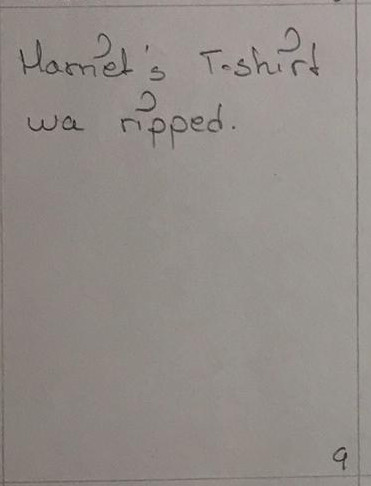 Harriet's T-shirt
wa ripped.
9